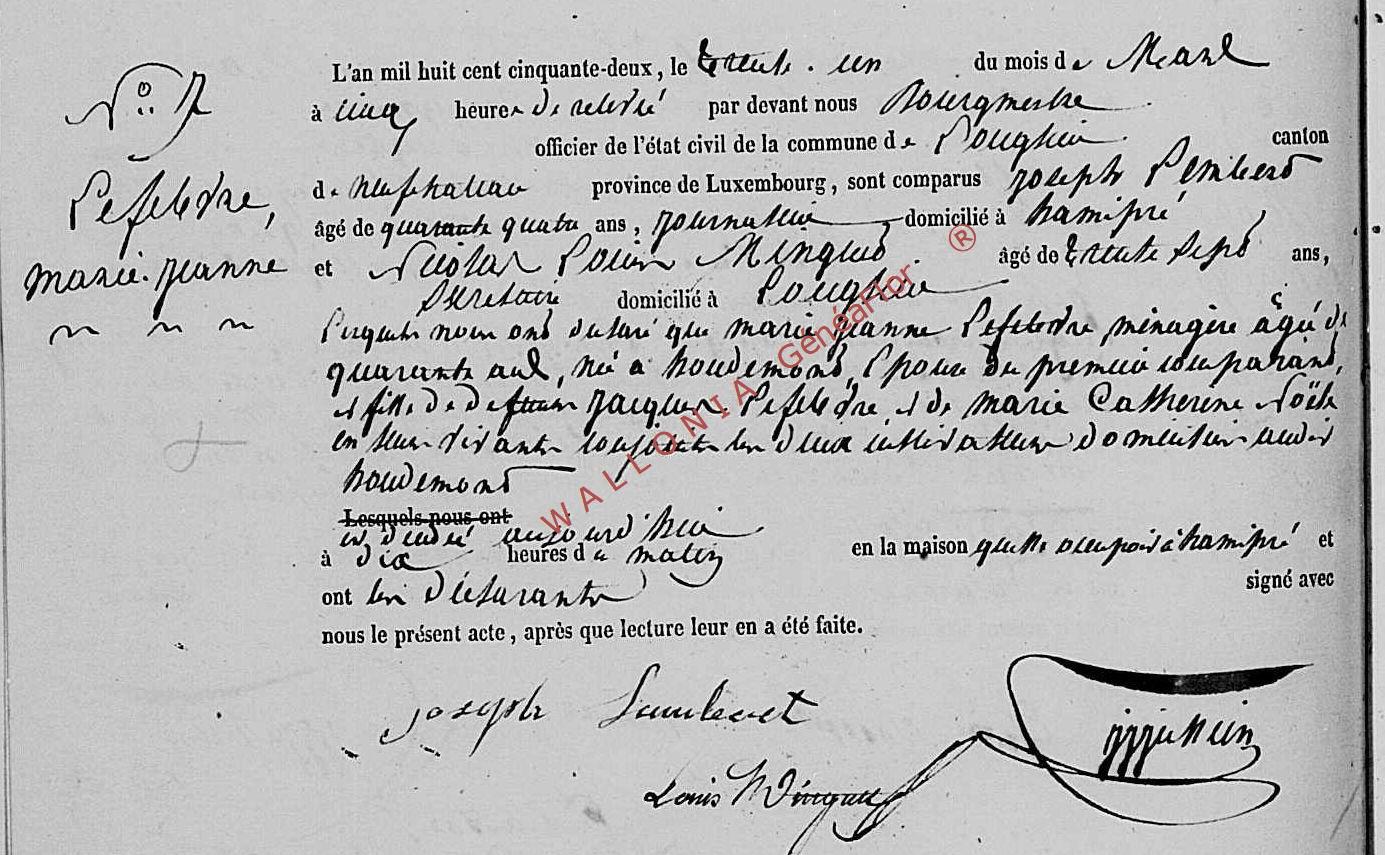 N° 7
Lefebvre,
marie-jeanne
L'an mil huit cent cinquante-deux, le trente-un du mois de Mars
à cinq heures de relevé par devant nous Bourgmestre
officier de l'état civil de la commune de Longlier canton
de neufchateau province de Luxembourg, sont comparus joseph Lambert
âgé de quarante quatre ans, journalier domicilié à hamipré
et Nicolas Louis Minguet âgé de trente sept ans,
Secretaire domicilié à Longlier
Lesquels nous ont declaré que marie jeanne Lefebvre ménagère âgée de
quarante ans, née a houdemont, Epouse du premier comparant,
et fille de defunts jacques Lefebvre et de marie Catherine Noël
en leur vivants conjoints les deux cultivateurs domiciliés audit
houdemont
Lesquels nous ont
est décédé aujourd'hui
à dix heures du matin en la maison qu'elle occupoit à hamipré et
ont les déclarants signé avec
nous le présent acte, après que lecture leur en a été faite.
joseph Lambert
Louis Minguet
WALLONIA GenéaFlor ®